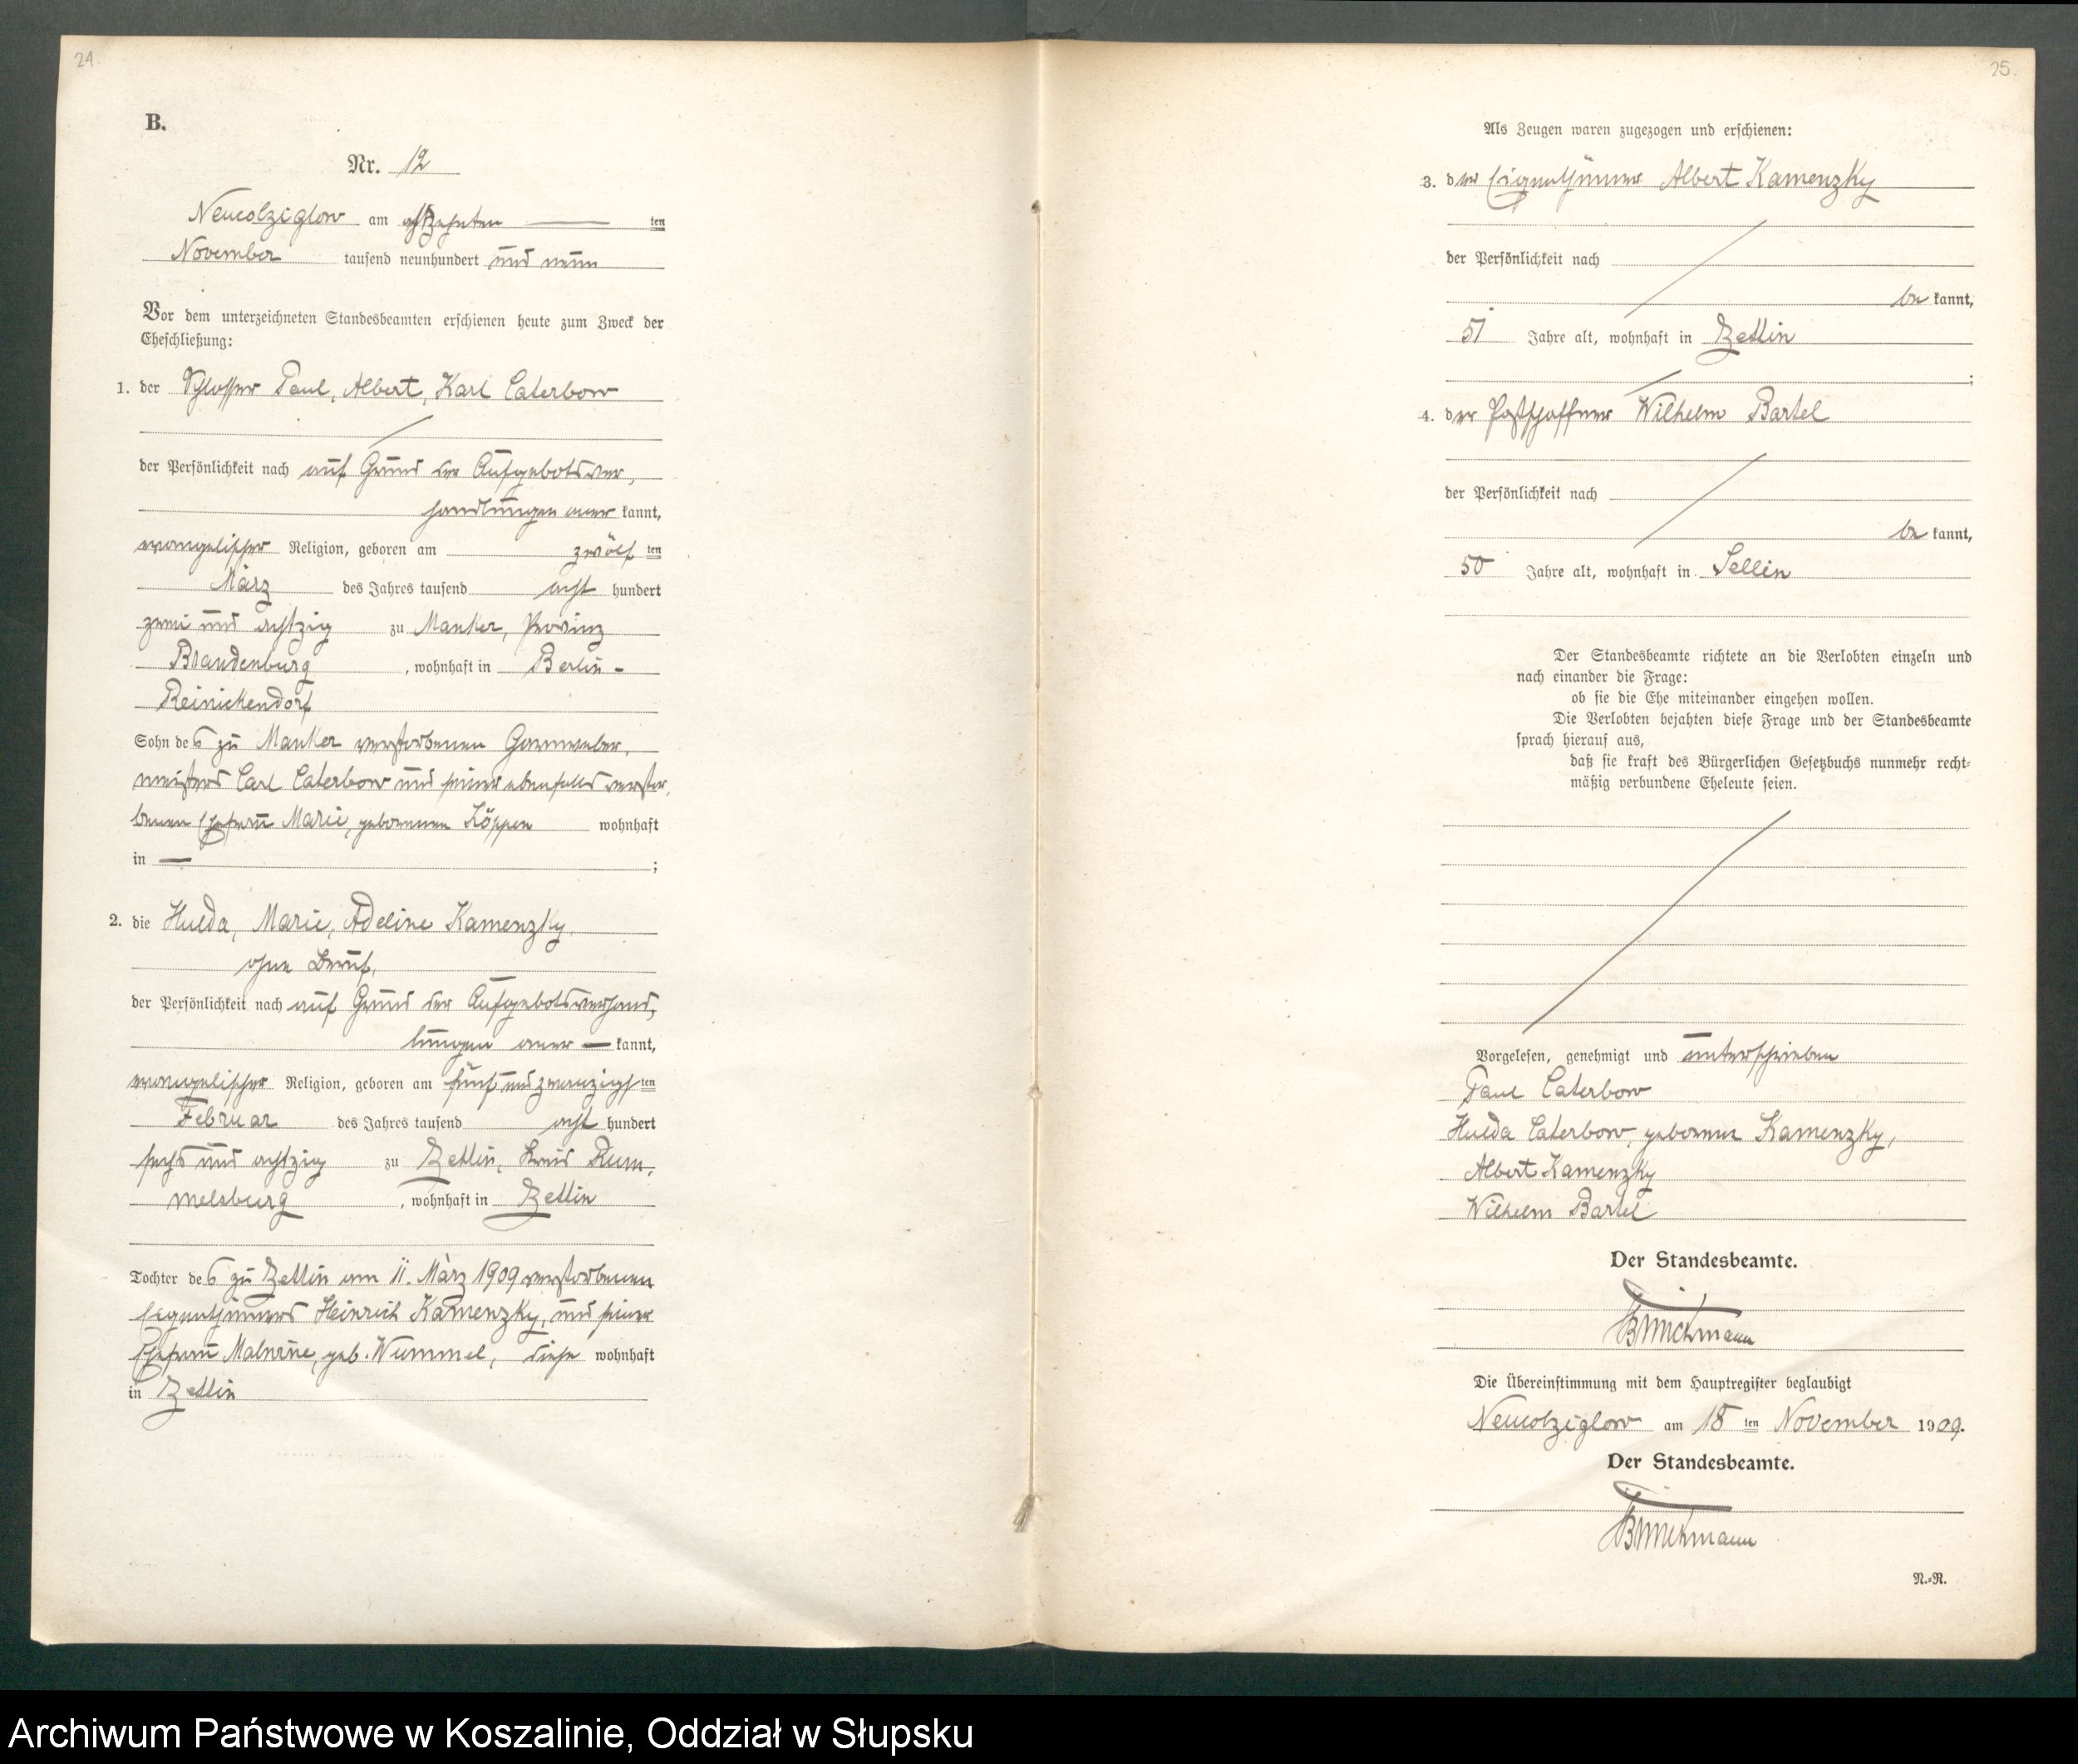 24.
B.
Nr. 12
Neucolziglow am achtzehnten ten
November tausend neunhundert und neun
Vor dem unterzeichneten Standesbeamten erschienen heute zum Zweck der
Eheschließung:
1. der Schlosser Paul, Albert, Karl Caterbow
der Persönlichkeit nach auf Grund der Aufgebotsver,
handlungen aner kannt,
evangelischer Religion, geboren am zwölf ten
März des Jahres tausend acht hundert
zwei und achtzig zu Manker, Provinz
Brandenburg, wohnhaft in Berlin-
Reinickendorf
Sohn des zu Manker verstorbenen Garnweber,
meisters Carl Caterbow und seiner ebenfalls verstor,
benen Ehefrau Marie, geborenen Köppen wohnhaft
in — ;
2. die Hulda, Marie, Adeline Kamenzky,
ohne Beruf,
der Persönlichkeit nach auf Grund der Aufgebotsverhand,
lungen aner — kannt,
evangelischer Religion, geboren am fünf und zwanzigs ten
Februar des Jahres tausend acht hundert
sechs und achtzig zu Zettin, Kreis Rum,
melsburg, wohnhaft in Zettin
Tochter des zu Zettin am 11. März 1909 verstorbenen
Eigenthümers Heinrich Kamenzky, und seiner
Ehefrau Malwine, geb. Wummel, diese wohnhaft
in Zettin
25.
Als Zeugen waren zugezogen und erschienen:
3. der Eigenthümer Albert Kamenzky
der Persönlichkeit nach
be kannt,
51 Jahre alt, wohnhaft in Zettin
;
4. der Postschaffner Wilhelm Bartel
der Persönlichkeit nach
be kannt,
50 Jahre alt, wohnhaft in Sellin
Der Standesbeamte richtete an die Verlobten einzeln und
nach einander die Frage:
ob sie die Ehe miteinander eingehen wollen.
Die Verlobten bejahten diese Frage und der Standesbeamte
sprach hierauf aus,
daß sie kraft des Bürgerlichen Gesetzbuchs nunmehr recht-
mäßig verbundene Eheleute seien.
Vorgelesen, genehmigt und unterschrieben
Paul Caterbow
Hulda Caterbow, geborene Kamenzky,
Albert Kamenzky
Wilhelm Bartel
Der Standesbeamte.
Die Übereinstimmung mit dem Hauptregister beglaubigt
Neucolziglow am 18 ten November 1909.
Der Standesbeamte.
N.-R.
Archiwum Państwowe w Koszalinie, Oddział w Słupsku